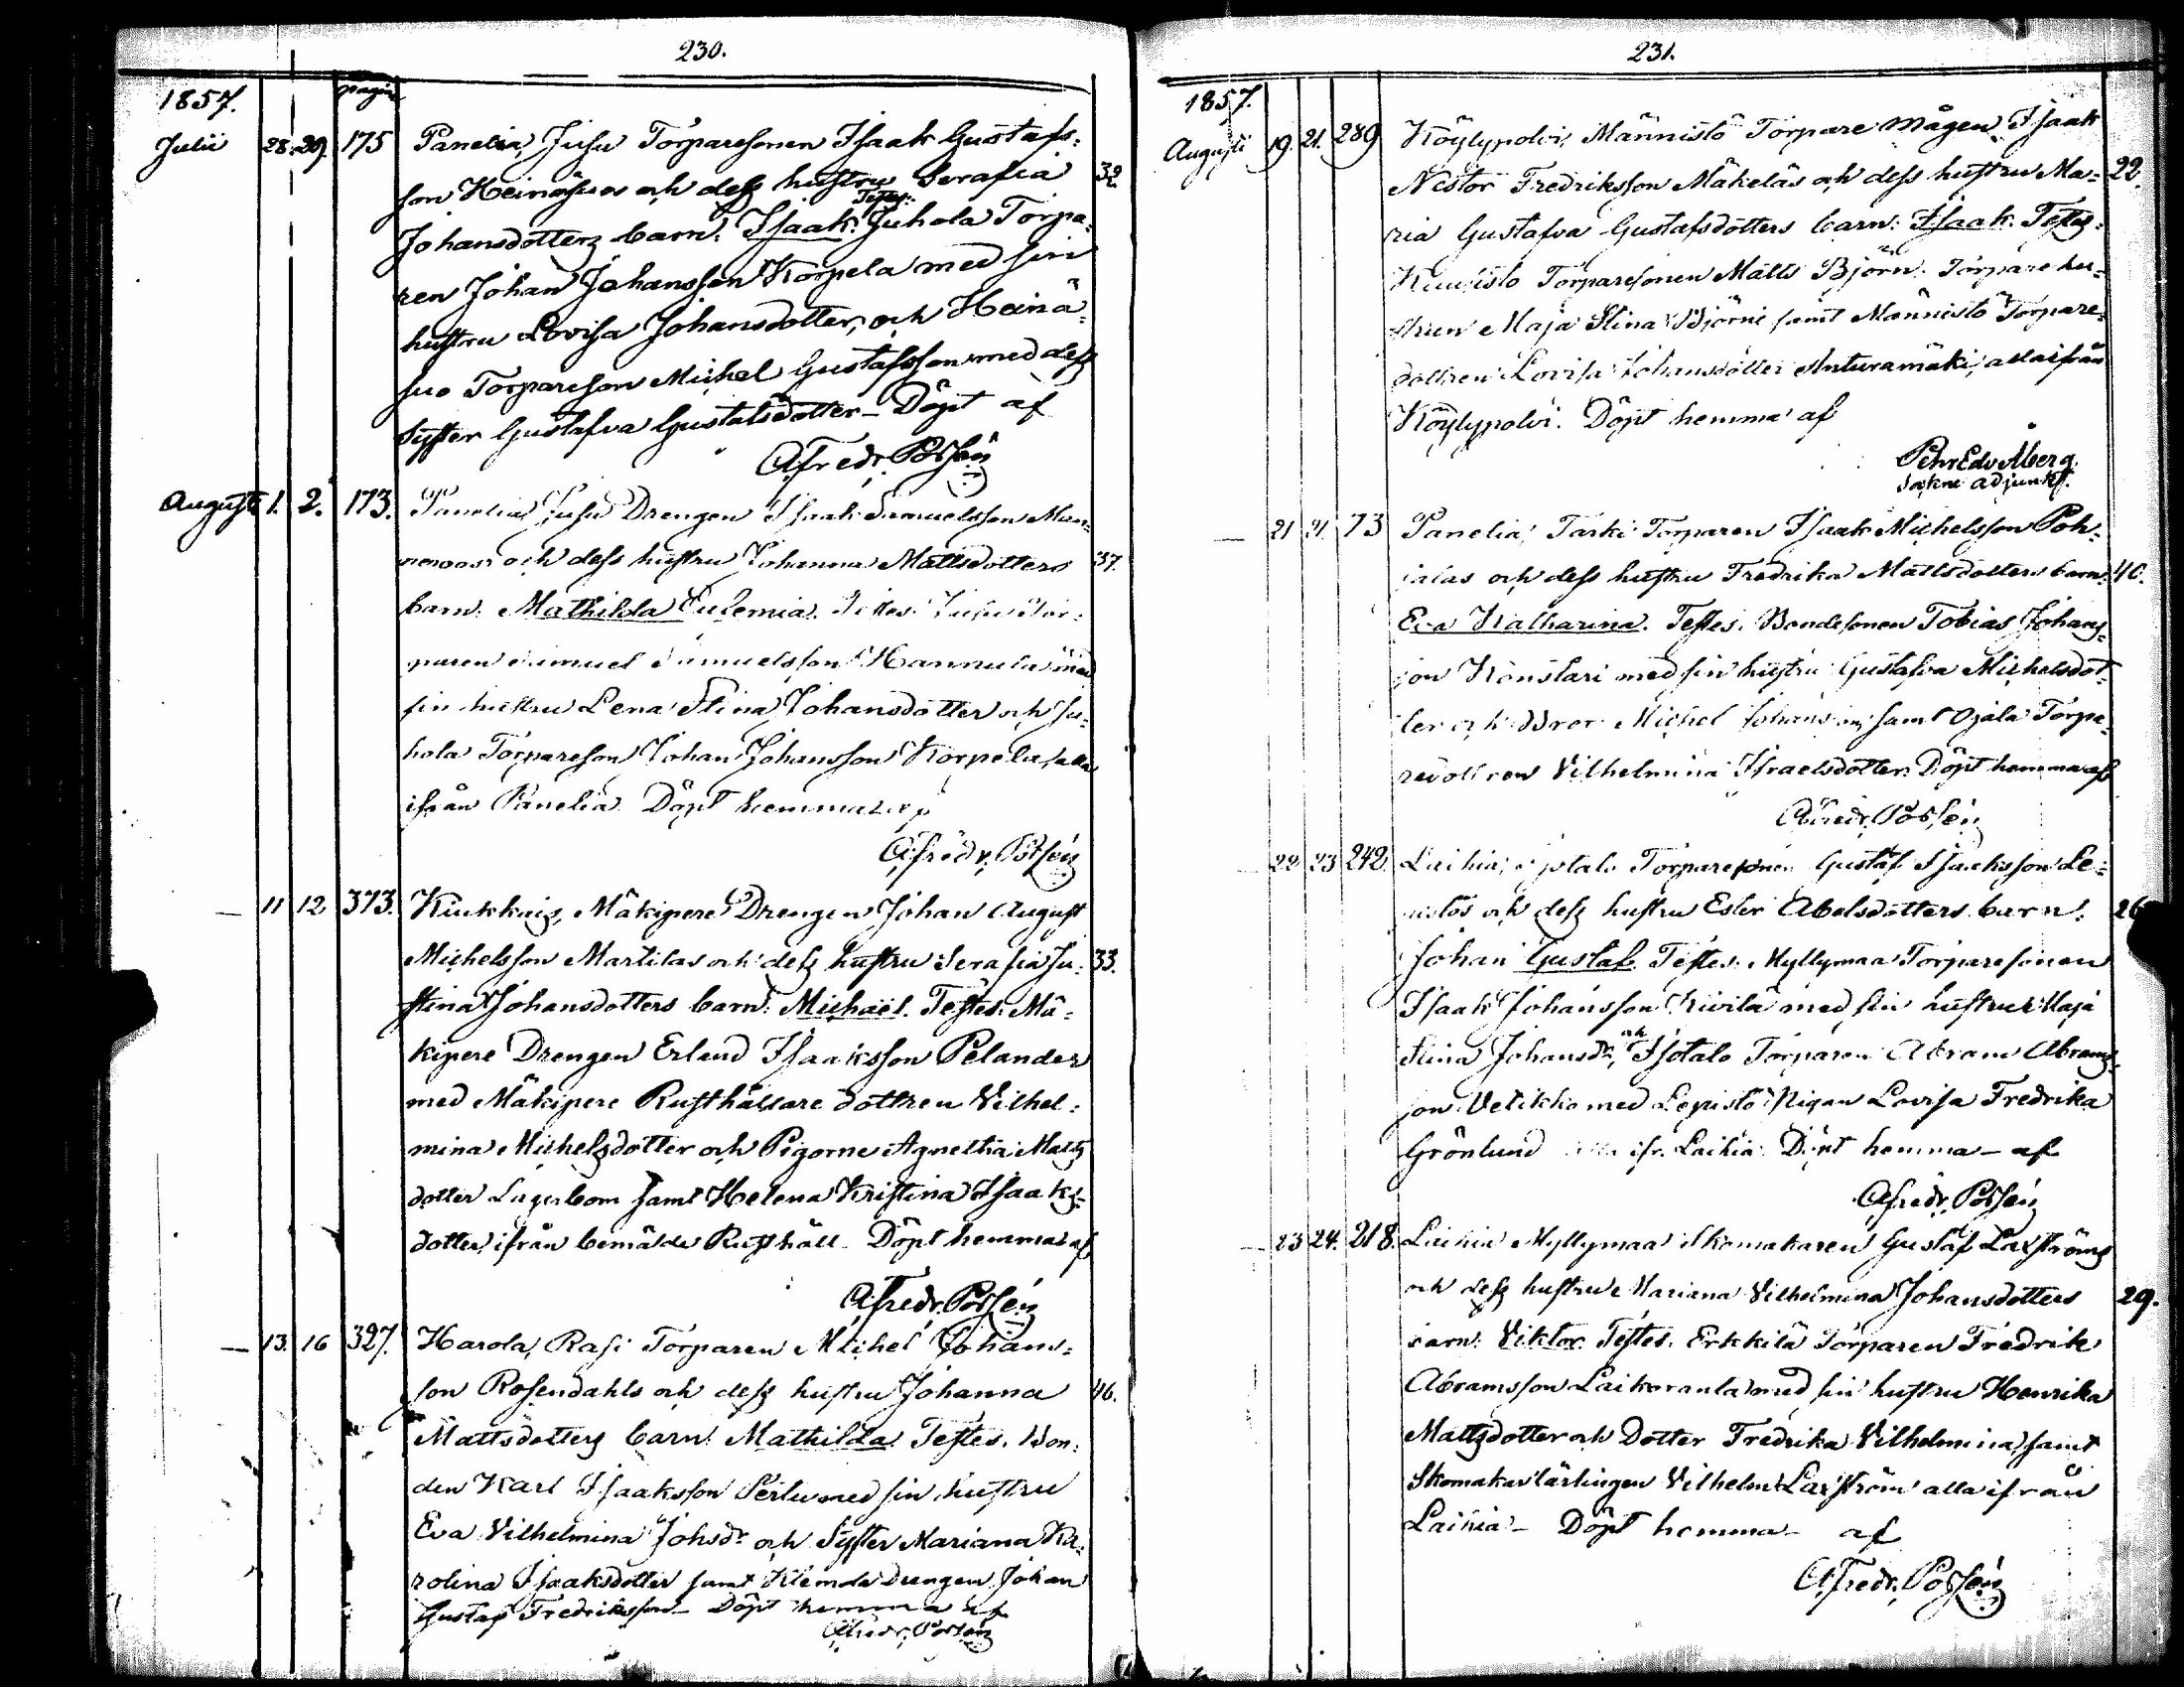 230.
1857. pagin
Julii 28. 29. 175 Panelia, Jusu Torparesonen Isaak Gustafs-
son Heinäsuos och dess hustru Serafia 32.
Johansdotters barn: Isaak. Testes: Juhola Torpa-
ren Johan Johansson Korpela med sin
hustru Lovisa Johansdotter, och Heinä-
suo Torpareson Michel Gustafsson med dess
Syster Gustafva Gustafsdotter - Döpt af
A Fredr. Possén
Augusti 1. 2. 173. Panelia Jusu Drengen Isaak Samuelsson
och dess hustru Johanna Mattsdotters 37.
barn: Mathilda Eufemia. Testes: Jusu Tor-
paren Samuel Samuelsson Hannula med
sin hustru Lena Stina Johansdotter och Ju-
hola Torpareson Johan Johansson Korpela, alla
ifrån Panelia. Döpt hemma af
A Fredr. Possén
— 11 12 373. Kiukkais, Mäkipere Drengen Johan August
Michelsson Martilas och dess hustru Serafia Ju- 33.
stina Johansdotters barn: Michaël. Testes: Mä-
kipere Drengen Erland Isaaksson Pelander
med Mäkipere Rusthållare dottren Vilhel-
mina Michelsdotter och Pigorne Agnetha Matts
dotter Lagerbom samt Helena Kristina Isaaks-
dotter, ifrån bemälde Rusthåll - Döpt hemma af
A Fredr. Possén
— 13. 16 327. Harola, Rasi Torparen Michel Johans-
son Rosendahls och dess hustru Johanna 46.
Mattsdotters barn: Mathilda Testes. Bon-
den Karl Isaaksson Perlu med sin hustru
Eva Vilhelmina Johsdr och Syster Mariana Ka-
rolina Isaaksdotter samt Klemola Drengen Johan
Gustaf Fredriksson - Döpt hemma af
A Fredr. Possén
231.
1857.
Augusti 19. 21. 289 Köylypolvi, Männistö Torpare mågen Isaak
Nestor Fredriksson Mäkeläs och dess hustru Ma- 22.
ria Gustafva Gustafsdotters barn: Isaak. Testes:
Torparesonen Matts Björn. Torpare hu-
strun Maja Stina Björni samt Männistö Torpare-
dottren Lovisa Johansdotter Anturamäki, alla ifrån
Köylypolvi. Döpt hemma af
Pehr Edv Åberg.
Sockne adjunkt.
— 21 21. 73 Panelia, Tarki Torparen Isaak Michelsson Poh-
jalas och dess hustru Fredrika Mattsdotters barn: 40.
Eva Katharina. Testes. Bondesonen Tobias Johans-
son Könstari med sin hustru Gustafva Michelsdot-
ter och Bror Michel Johansson, samt Ojala Torpa-
redottren Vilhelmina Israelsdotter. Döpt hemma af
A Fredr. Possén
— 22 23 242. Laihia, Isotalo Torparesonen Gustaf Isaksson Le-
pistös och dess hustru Ester Abelsdotters barn. 26
Johan Gustaf. Testes: Myllymaa Torparesonen
Isaak Johansson Kivilä med sin hustru Maja
Stina Johansdr, och Isotalo Torparen Abram Abrams-
son Vetikko med Lepistö Pigan Lovisa Fredrika
Grönlund alla ifr. Laihia. Döpt hemma - af
A Fredr. Possén
— 23 24. 218. Laihia Myllymaa Skomakaren Gustaf Laxströms
och dess hustru Mariana Vilhelmina Johansdotters 29.
barn: Viktor. Testes. Erkkilä Torparen Fredrik
Abramsson Laikoranta med sin hustru Henrika
Mattsdotter och Dotter Fredrika Vilhelmina, samt
Skomakarlärlingen Vilhelm Laxström alla ifrån
Laihia - Döpt hemma - af
A Fredr. Possén